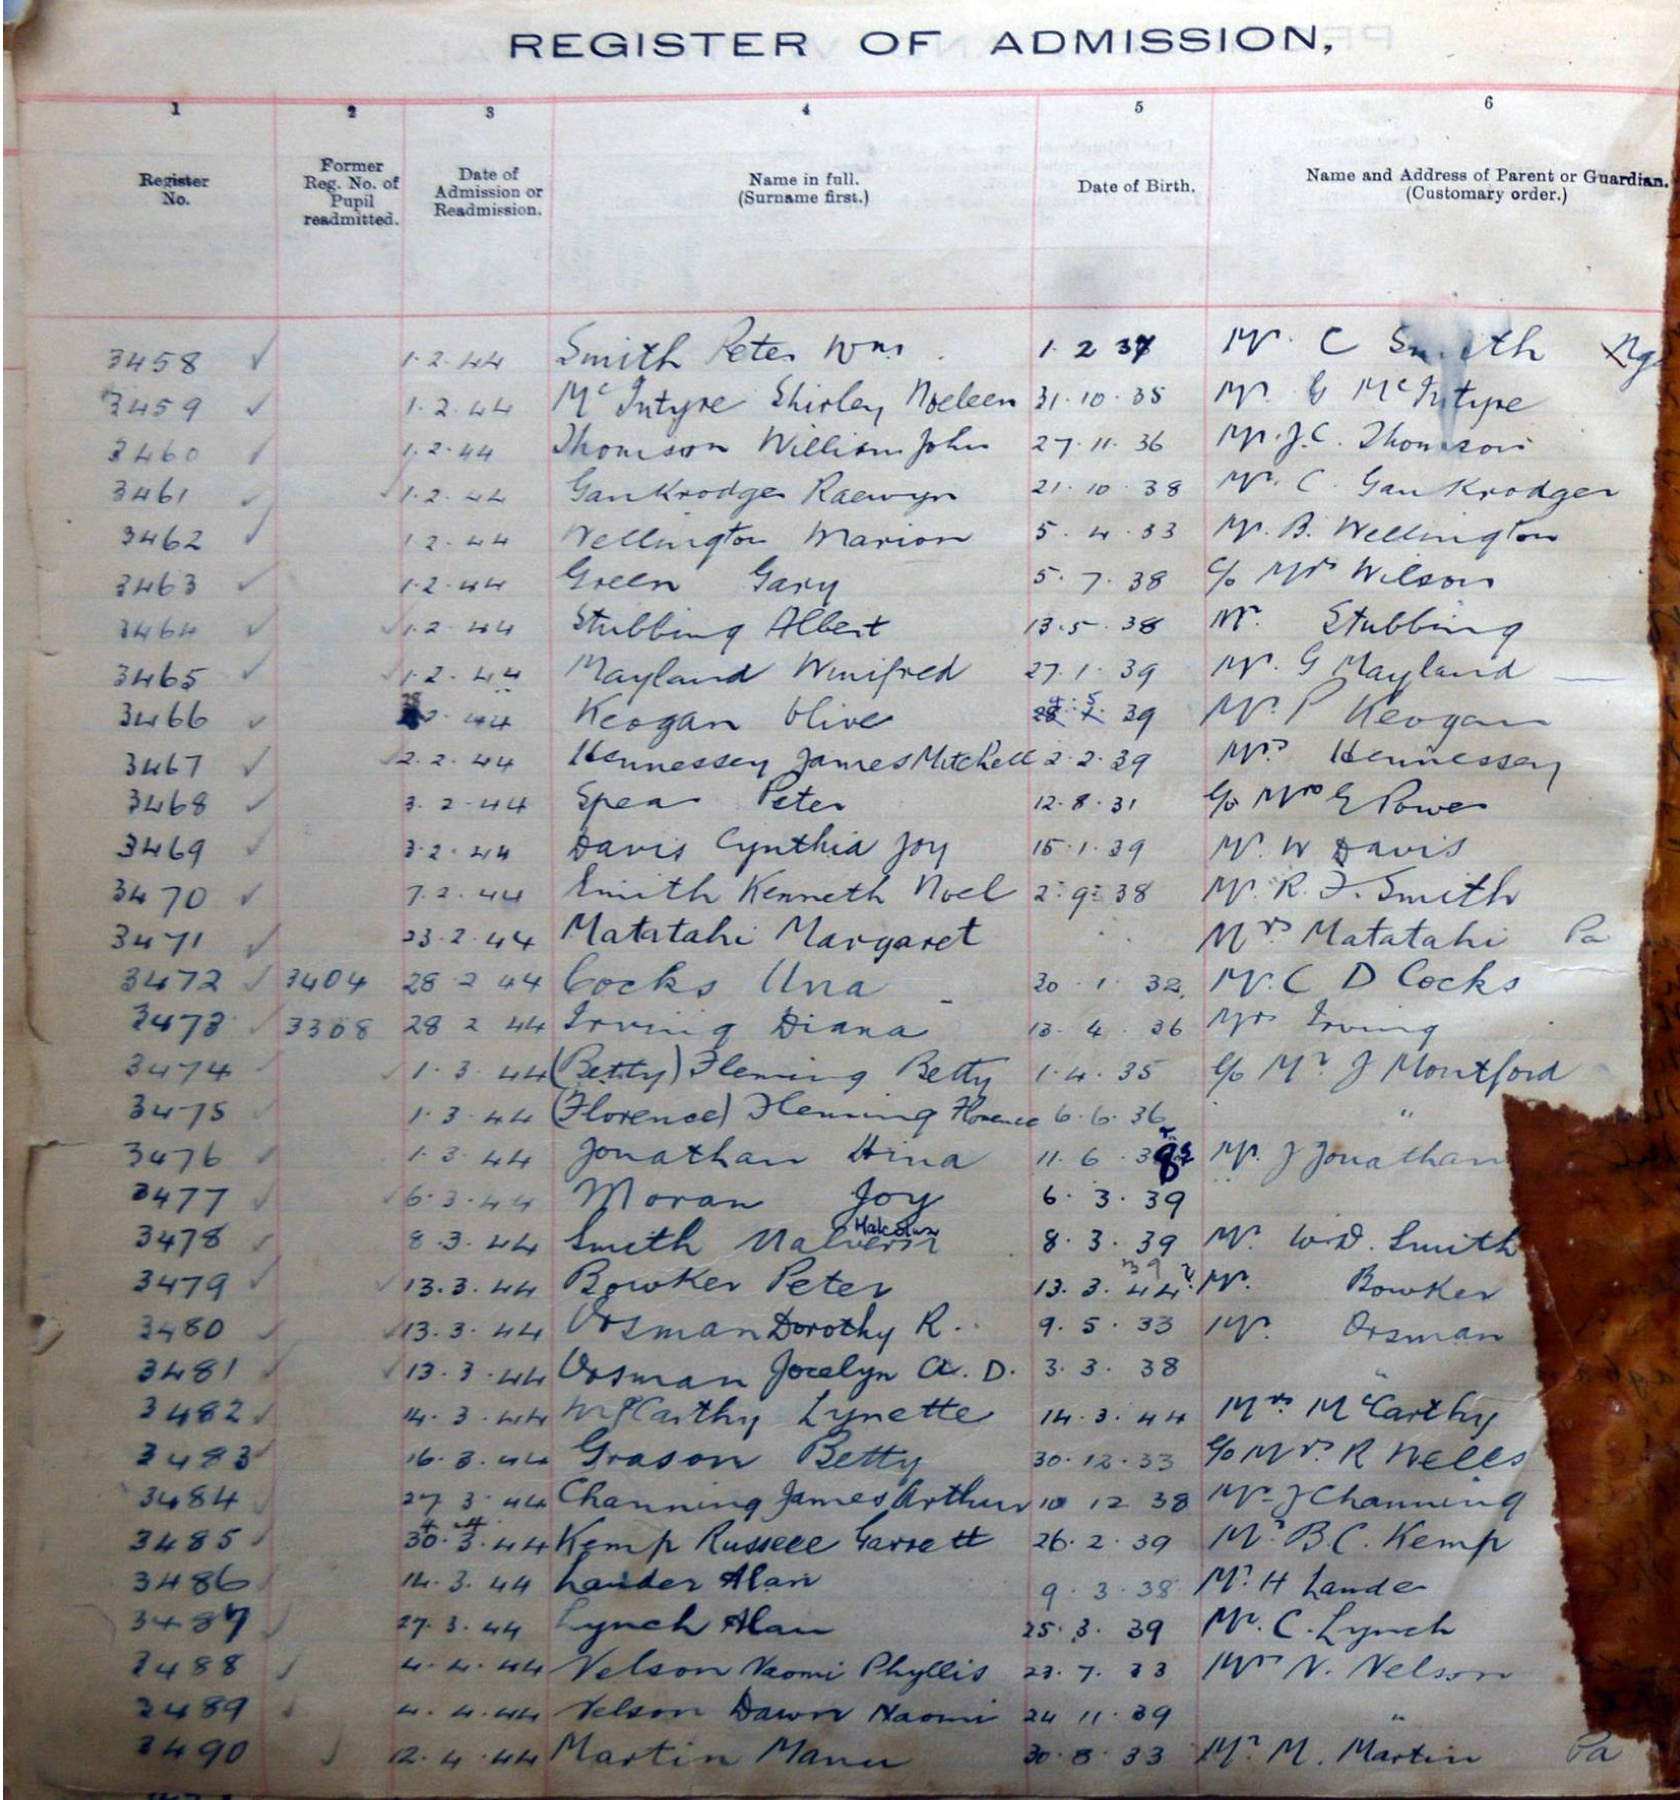 REGISTER OF ADMISSION,
1 2 3 4 5 6
Register No. Former Reg. No. of Pupil readmitted. Date of Admission or Readmission. Name in full. (Surname first.) Date of Birth. Name and Address of Parent or Guardian. (Customary order.)
3458 ✓ 1.2.44 Smith Peter Wm. 1.2 37 Mr. C Smith
3459 ✓ 1.2.44 McIntyre Shirley Noeleen 31.10.35 Mr. G McIntyre
3460 ✓ 1.2.44 Thomson William John 27.11.36 Mr. J.C. Thomson
3461 ✓ ✓ 1.2.44 GanKrodger Raewyn 21.10.38 Mr. C. GanKrodger
3462 ✓ 1.2.44 Wellington Marion 5.4.33 Mr. B. Wellington
3463 ✓ 1.2.44 Green Gary 5.7.38 c/o Mrs Wilson
3464 ✓ ✓ 1.2.44 Stubbing Albert 13.5.38 Mr. Stubbing
3465 ✓ ✓ 1.2.44 Mayland Winifred 27.1.39 Mr. G Mayland
3466 ✓ 2.44 Keogan Olive 4.5.39 Mr. P Keogan
3467 ✓ ✓ 2.2.44 Hennessey James Mitchell 2.2.39 Mrs Hennessey
3468 ✓ 3.2.44 Spear Peter 12.8.31 c/o Mrs E Power
3469 ✓ 3.2.44 Davis Cynthia Joy 15.1.39 Mr. W Davis
3470 ✓ 7.2.44 Smith Kenneth Noel 2.9.38 Mr. R. F. Smith
3471 ✓ 23.2.44 Matatahi Margaret Mrs Matatahi Pa
3472 ✓ 3404 28.2.44 Cocks Una 30.1.32 Mr. C D Cocks
3473 ✓ 3308 28 2 44 Irving Diana 13.4.36 Mrs Irving
3474 ✓ ✓ 1.3.44 (Betty) Fleming Betty 1.4.35 c/o Mr. J Montford
3475 ✓ 1.3.44 (Florence) Fleming Florence 6.6.36 "
3476 ✓ 1.3.44 Jonathan Hina 11.6.38 Mr. J Jonathan
3477 ✓ ✓ 6.3.44 Moran Joy 6.3.39
3478 ✓ 8.3.44 Smith Malvern Malcolm 8.3.39 Mr. W.D. Smith
3479 ✓ ✓ 13.3.44 Bowker Peter 13.3.44 39 ? Mr. Bowker
3480 ✓ ✓ 13.3.44 Orsman Dorothy R. 9.5.33 Mr. Orsman
3481 ✓ ✓ 13.3.44 Orsman Jocelyn A. D. 3.3.38 "
3482 ✓ 14.3.44 McCarthy Lynette 14.3.44 Mrs McCarthy
3483 ✓ 16.3.44 Grason Betty 30.12.33 c/o Mrs. R Wells
3484 ✓ 27 3.44 Channing James Arthur 10 12 38 Mr. J Channing
3485 ✓ 30.3.44 4 4 Kemp Russell Garrett 26.2.39 Mr. B.C. Kemp
3486 14.3.44 Lauder Alan 9.3.38 Mr. H Lauder
3487 ✓ 27.3.44 Lynch Alan 25.3.39 Mr. C. Lynch
3488 ✓ 4.4.44 Nelson Naomi Phyllis 23.7.33 Mrs N. Nelson
3489 ✓ 4.4.44 Nelson Dawn Naomi 24 11.39 "
3490 ✓ 12.4.44 Martin Manu 30.8.33 Mr. M. Martin Pa